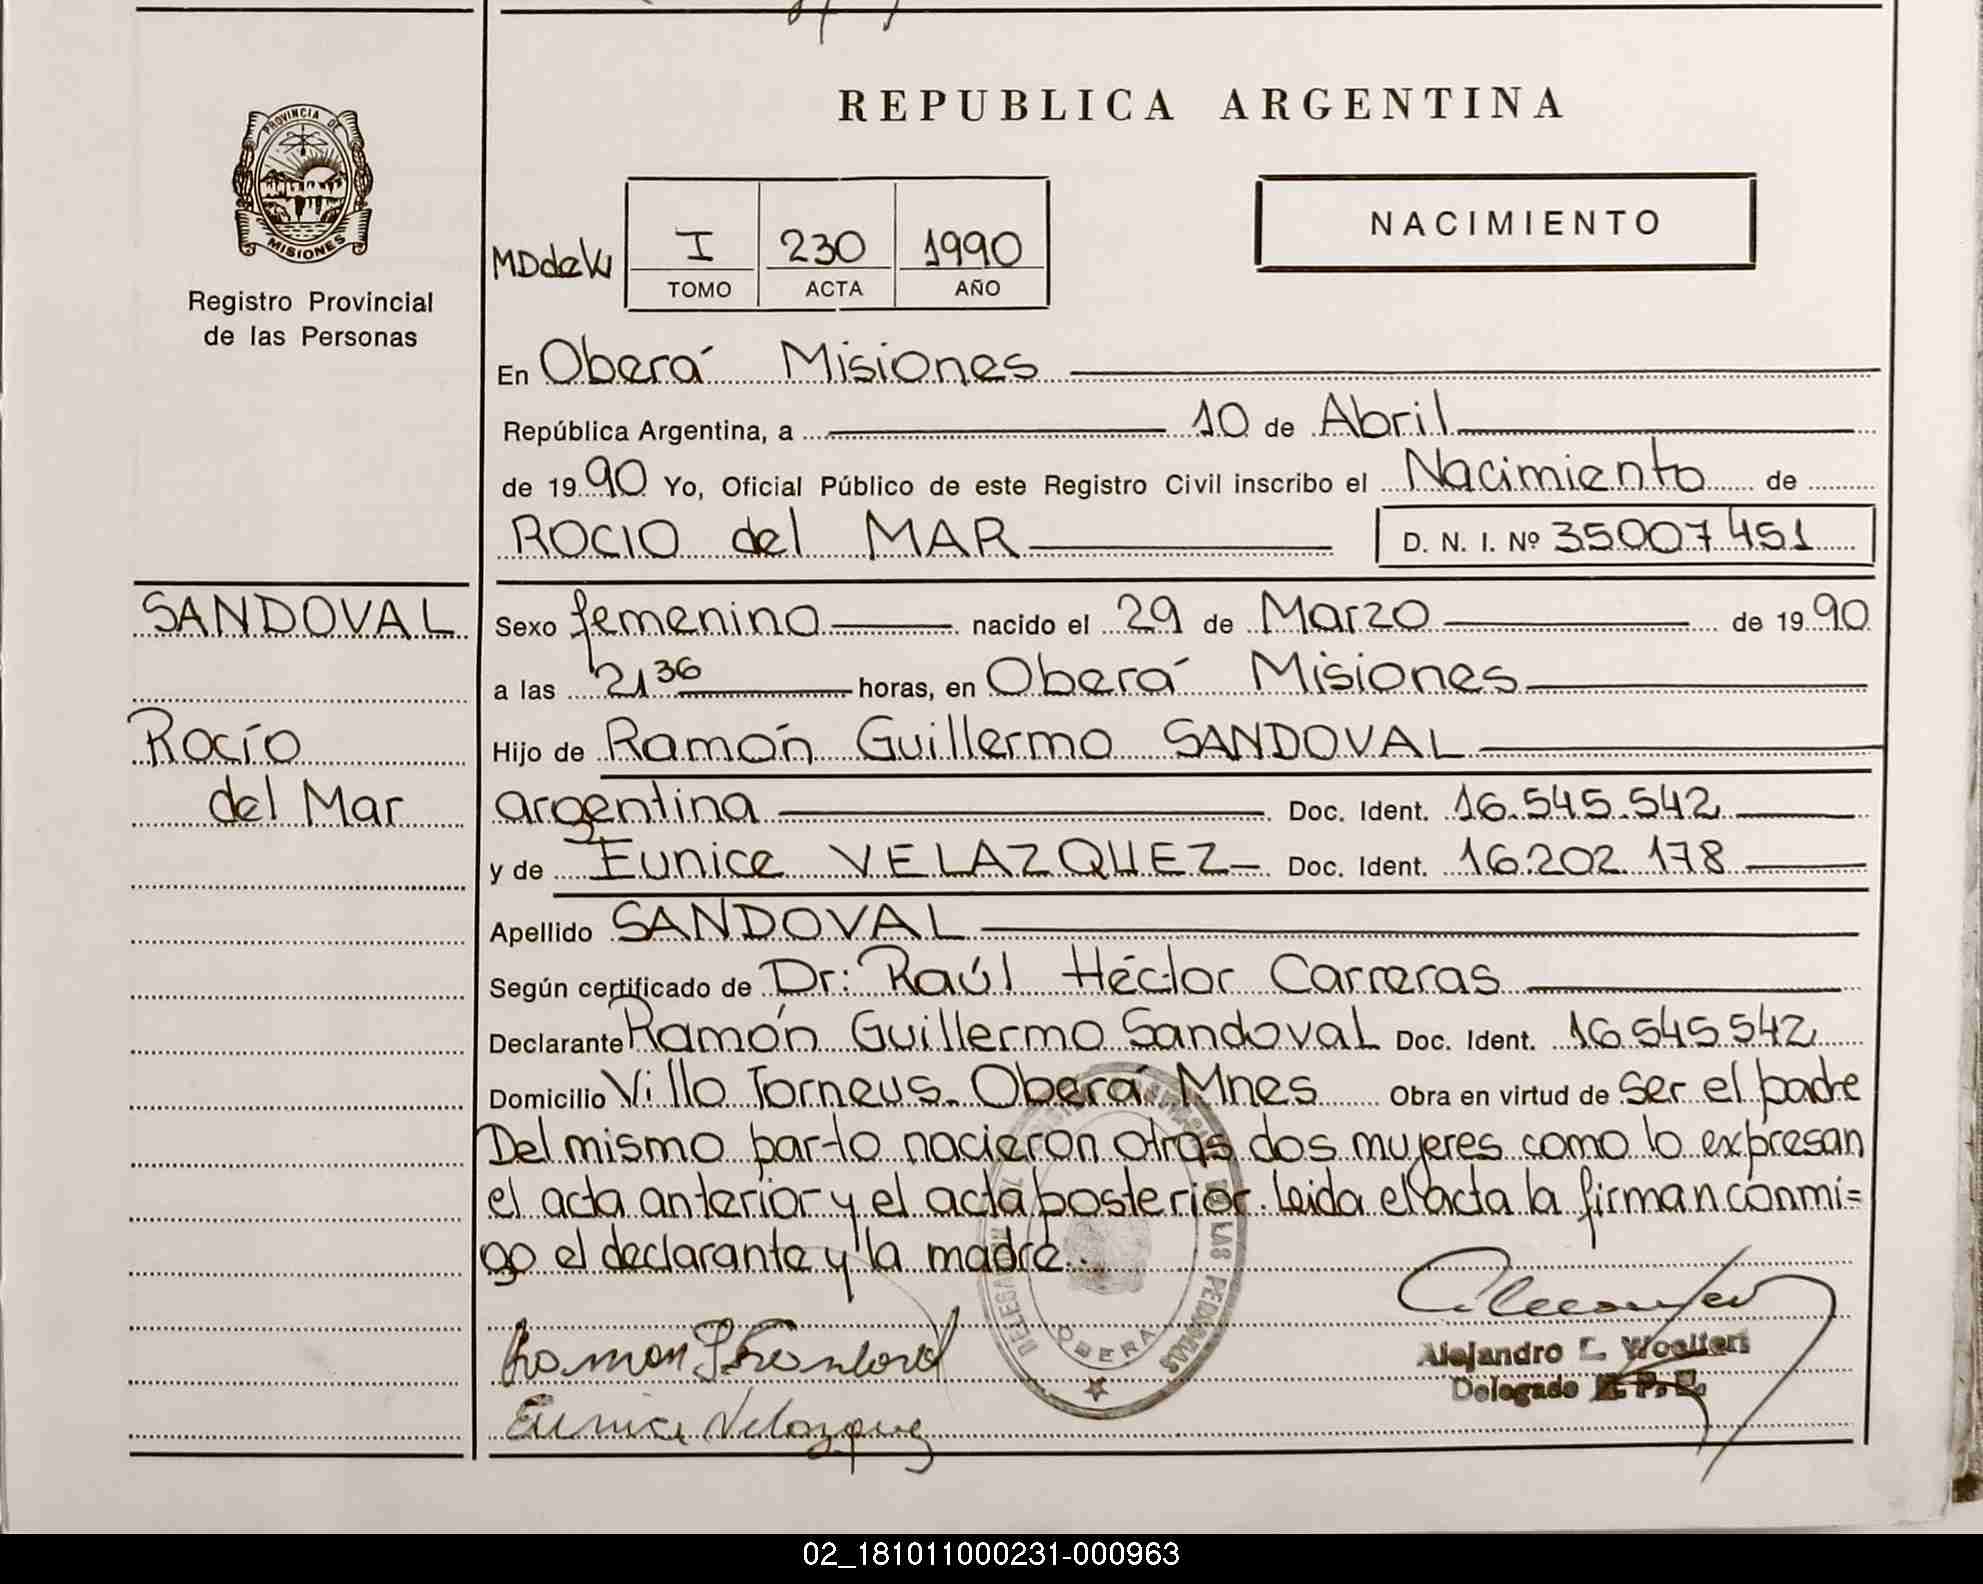 REPUBLICA ARGENTINA
PROVINCIA DE
MISIONES
Registro Provincial
de las Personas
NACIMIENTO
MDdeW I 230 1990
TOMO ACTA AÑO
En Oberá Misiones
República Argentina, a 10 de Abril
de 1990 Yo, Oficial Público de este Registro Civil inscribo el Nacimiento de
ROCIO del MAR D. N. I. Nº 35007451
SANDOVAL
Rocío
del Mar
Sexo femenino nacido el 29 de Marzo de 1990
a las 21 36 horas, en Oberá Misiones
Hijo de Ramón Guillermo SANDOVAL
argentina Doc. Ident. 16.545.542
y de Eunice VELAZQUEZ Doc. Ident. 16.202.178
Apellido SANDOVAL
Según certificado de Dr: Raúl Héctor Carreras
Declarante Ramón Guillermo Sandoval Doc. Ident. 16.545.542
Domicilio Villa Torneus. Oberá Mnes Obra en virtud de ser el padre
Del mismo parto nacieron otras dos mujeres como lo expresan
el acta anterior y el acta posterior. Leida el acta la firman conmi=
go el declarante y la madre.
Ramon G Sandoval
Eunice Velazquez
OBERA
Alejandro
Delegado
02_181011000231-000963